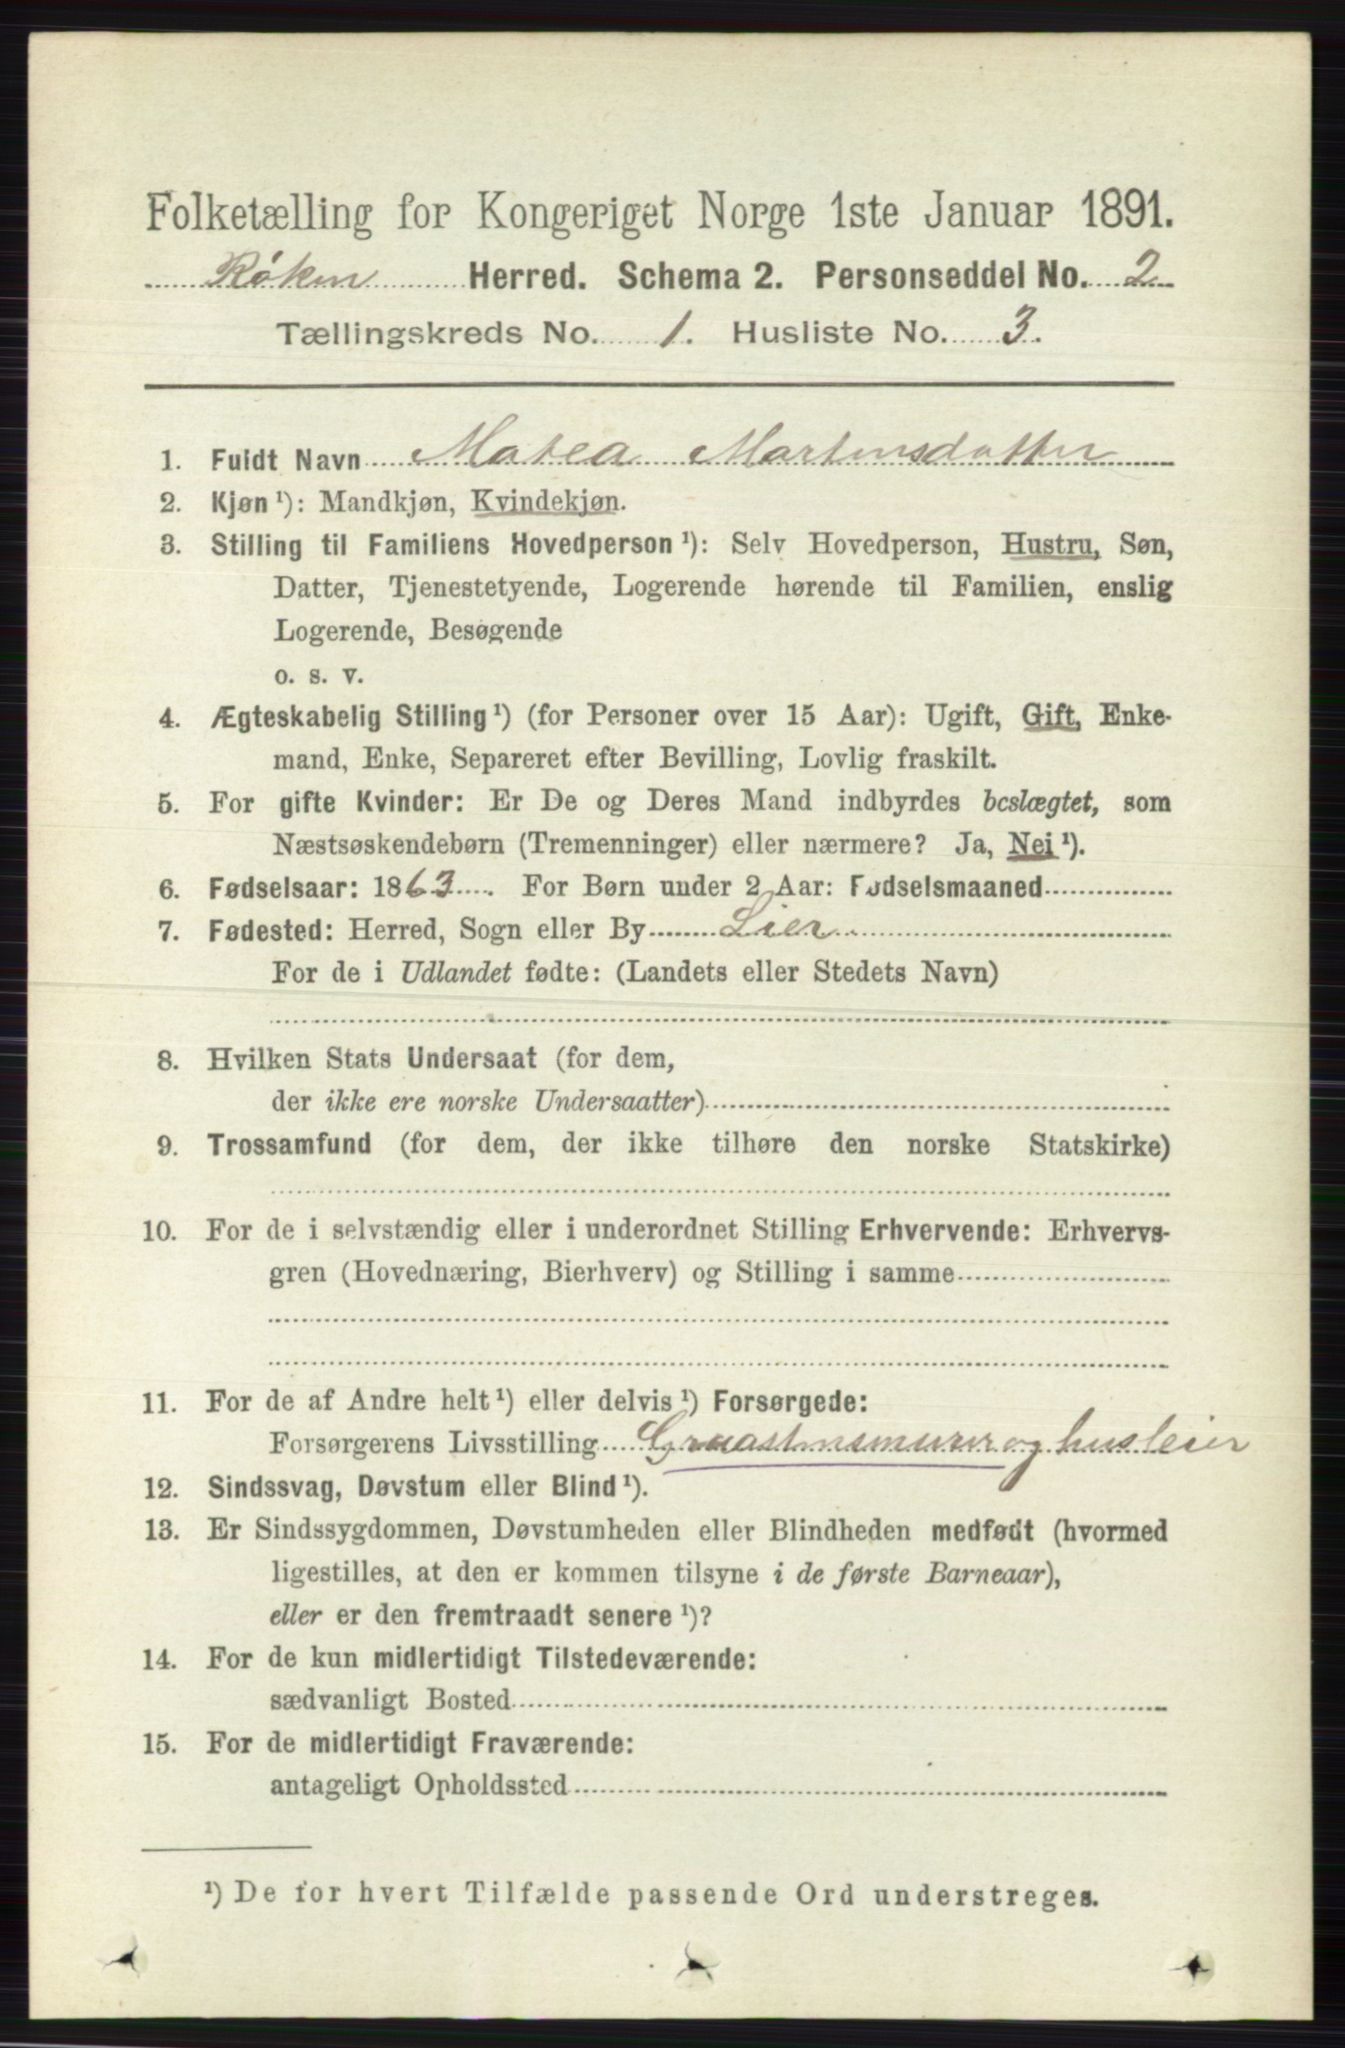 Folketælling for Kongeriget Norge 1ste Januar 1891.
Røken Herred. Schema 2. Personseddel No. 2
Tællingskreds No. 1. Husliste No. 3.
1. Fuldt Navn Matea Martinsdatter
2. Kjøn ¹): Mandkjøn, Kvindekjøn.
3. Stilling til Familiens Hovedperson ¹): Selv Hovedperson, Hustru, Søn,
Datter, Tjenestetyende, Logerende hørende til Familien, enslig
Logerende, Besøgende
o. s. v.
4. Ægteskabelig Stilling ¹) (for Personer over 15 Aar): Ugift, Gift, Enke-
mand, Enke, Separeret efter Bevilling, Lovlig fraskilt.
5. For gifte Kvinder: Er De og Deres Mand indbyrdes beslægtet, som
Næstsøskendebørn (Tremenninger) eller nærmere? Ja, Nei ¹).
6. Fødselsaar: 1863. For Børn under 2 Aar: Fødselsmaaned
7. Fødested: Herred, Sogn eller By Lier
For de i Udlandet fødte: (Landets eller Stedets Navn)
8. Hvilken Stats Undersaat (for dem,
der ikke ere norske Undersaatter)
9. Trossamfund (for dem, der ikke tilhøre den norske Statskirke)
10. For de i selvstændig eller i underordnet Stilling Erhvervende: Erhvervs-
gren (Hovednæring, Bierhverv) og Stilling i samme
11. For de af Andre helt ¹) eller delvis ¹) Forsørgede:
Forsørgerens Livsstilling Graastensmurer og husleier
12. Sindssvag, Døvstum eller Blind ¹).
13. Er Sindssygdommen, Døvstumheden eller Blindheden medfødt (hvormed
ligestilles, at den er kommen tilsyne i de første Barneaar),
eller er den fremtraadt senere ¹)?
14. For de kun midlertidigt Tilstedeværende:
sædvanligt Bosted
15. For de midlertidigt Fraværende:
antageligt Opholdssted
¹) De for hvert Tilfælde passende Ord understreges.